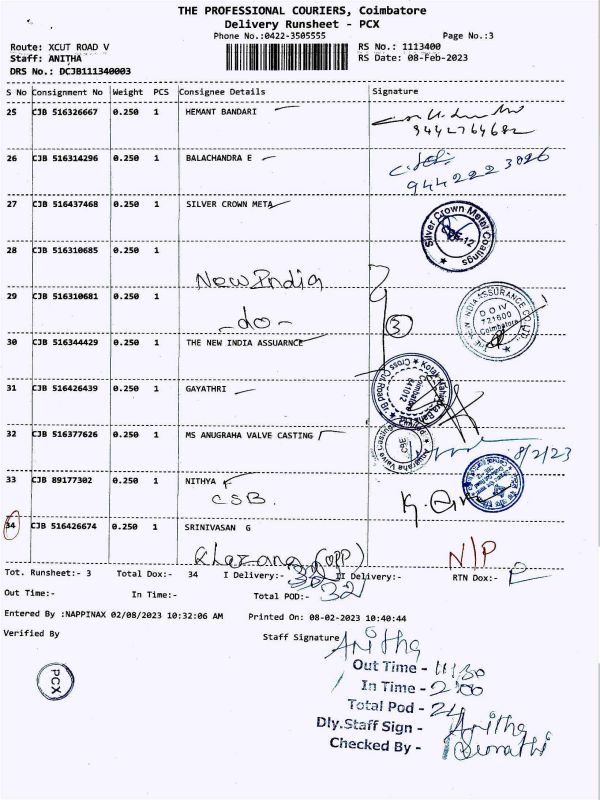 THE PROFESSIONAL COURIERS, Coimbatore
Delivery Runsheet - PCX
Phone No.:0422-3505555
Page No.:3
Route: XCUT ROAD V
RS No.: 1113400
Staff: ANITHA
RS Date: 08-Feb-2023
DRS No.: DCJB111340003
S No Consignment No Weight PCS Consignee Details Signature
25 CJB 516326667 0.250 1 HEMANT BANDARI
26 CJB 516314296 0.250 1 BALACHANDRA E
944222 3026
27 CJB 516437468 0.250 1 SILVER CROWN META
Silver Crown Metal Coatings
CBE-12
28 CJB 516310685 0.250 1
New India
29 CJB 516310681 0.250 1
-do-
3
THE NEW INDIA ASSURANCE CO. LTD.
D O IV
721600
Coimbatore
30 CJB 516344429 0.250 1 THE NEW INDIA ASSUARNCE
Coimbatore
641012
31 CJB 516426439 0.250 1 GAYATHRI
32 CJB 516377626 0.250 1 MS ANUGRAHA VALVE CASTING
Anugraha Valve Castings
8/2/23
33 CJB 89177302 0.250 1 NITHYA
CSB
34 CJB 516426674 0.250 1 SRINIVASAN G
Khazana (OPP)
N/P
Tot. Runsheet:- 3 Total Dox:- 34 I Delivery:- II Delivery:- RTN Dox:-
Out Time:- In Time:- Total POD:- 32
Entered By :NAPPINAX 02/08/2023 10:32:06 AM Printed On: 08-02-2023 10:40:44
Verified By Staff Signature Anitha
PCX
Out Time - 11:30
In Time - 2:00
Total Pod -
Dly.Staff Sign - Anitha
Checked By -